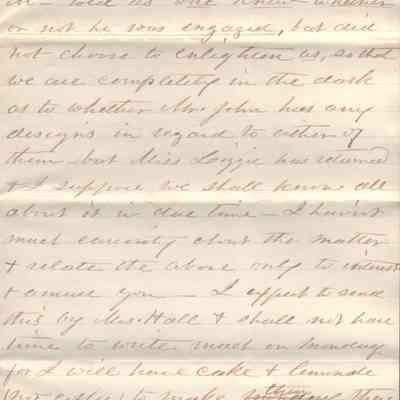 in - told us one knew whether
or not he was engaged, but did
not choose to enlighten us, so that
we are completely in the dark
as to whether Mr. John has any
designs in regard to either of
them - but Miss Lizzie has returned
& I suppose we shall know all
about it in due time - I havn't
much curiosity about the matter
& relate the above only to interest
& amuse you - I expect to send
this by Mrs. Hall & shall not have
time to write much on Monday
for I will have cake & lemonade
to make them